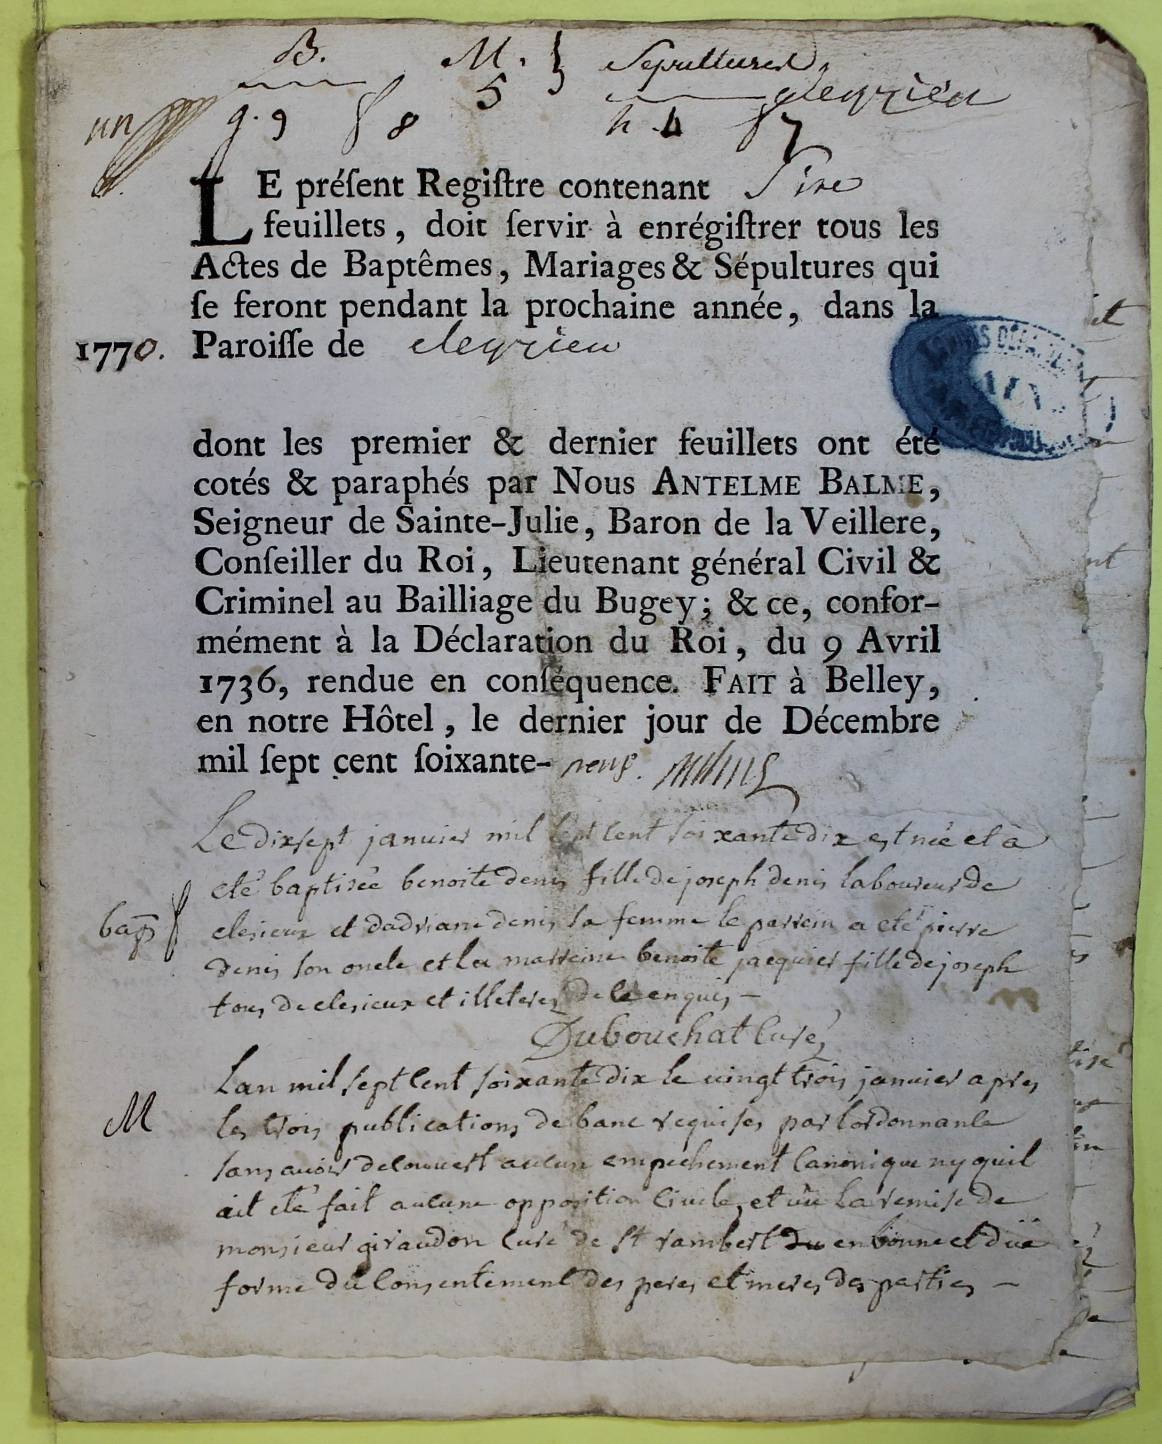 B. M. Sépultures
5 cleyzieu
un g. 9 f 8 h. 4 f 7
LE préſent Regiſtre contenant Sixe
feuillets, doit ſervir à enrégiſtrer tous les
Actes de Baptêmes, Mariages & Sépultures qui
ſe feront pendant la prochaine année, dans la
1770. Paroiſſe de cleyzieu
dont les premier & dernier feuillets ont été
cotés & paraphés par Nous ANTELME BALME,
Seigneur de Sainte-Julie, Baron de la Veillere,
Conſeiller du Roi, Lieutenant général Civil &
Criminel au Bailliage du Bugey; & ce, confor-
mément à la Déclaration du Roi, du 9 Avril
1736, rendue en conſéquence. FAIT à Belley,
en notre Hôtel, le dernier jour de Décembre
mil ſept cent ſoixante-neuf.
Le dixsept janvier mil sept cent soixante dix est née et a
eté baptisée benoite denis fille de joseph denis laboureur de
clesieux et dadriane denis sa femme le parrein a eté pierre
bap denis son oncle et la marreine benoite jacquier fille de joseph
tous de clesieux et illeteres de ce enquis —
Dubouchat Curé
Lan mil sept cent soixante dix le vingt trois janvier apres
M les trois publications de banc requises par lordonnance
sans avoir decouvert aucun empechement canonique ny quil
ait eté fait aucune opposition civile, et vu la remise de
monsieur giraudon curé de st rambert du en bonne et düe
forme du consentement des peres et meres des parties —